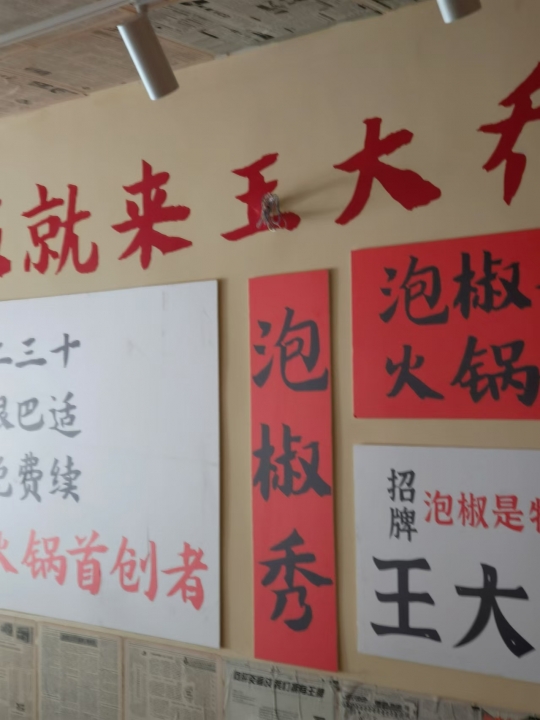 就来王大
二三十
巴适
费续
火锅首创者
泡椒秀
泡椒
火锅
招牌
泡椒是
王大